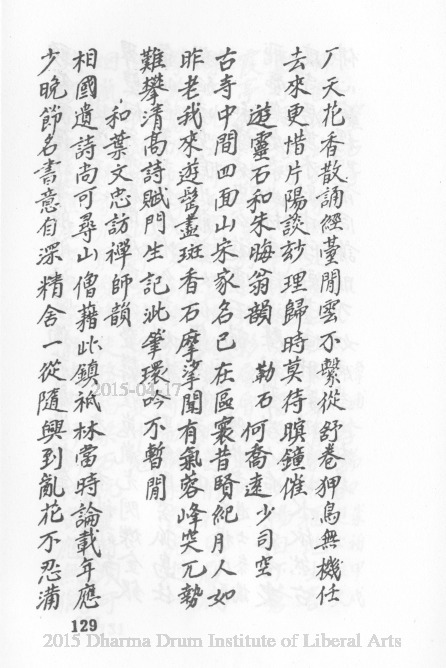 厂天花香散誦經薹閒雲不繫從舒卷狎鳥無機任
去來更惜片陽談玅理歸時莫待暝鐘催
遊靈石和朱晦翁韻　勒石何喬遠少司空
古寺中間四面山宋家名已在區寰昔賢紀月人如
昨老我來遊鬂盡斑香石摩挲聞有氣蓉峰突兀勢
難攀清高詩賦門生記沘筆環吟不暫閒
和葉文忠訪禪師韻
相國遺詩尚可尋山僧藉此鎮祇林當時論載年應
少晚節名書意自深精舍一從隨興到亂花不忍滿
129
2015-04-17
2015 Dharma Drum Institute of Liberal Arts